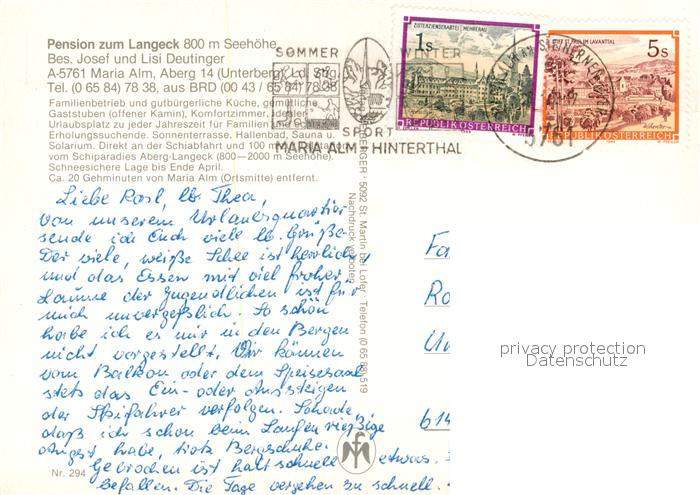 Pension zum Langeck 800 m Seehöhe
Bes. Josef und Lisi Deutinger
A-5761 Maria Alm, Aberg 14 (Unterberg), Ld. Sbg.
Tel. (0 65 84) 78 38, aus BRD (00 43 / 65 84) 78 38
Familienbetrieb und gutbürgerliche Küche, gemütliche
Gaststuben (offener Kamin), Komfortzimmer, ideales
Urlaubsplatz zu jeder Jahreszeit für Familien und
Erholungssuchende. Sonnenterrasse, Hallenbad, Sauna u.
Solarium. Direkt an der Schiabfahrt und 100 m
vom Schiparadies Aberg-Langeck (800—2000 m Seehöhe).
Schneesichere Lage bis Ende April.
Ca. 20 Gehminuten von Maria Alm (Ortsmitte) entfernt.
SOMMER WINTER
SPORT
MARIA ALM - HINTERTHAL
ZISTERZIENSERABTEI MEHRERAU
1s
REPUBLIK ÖSTERREICH
ST. PAUL IM LAVANTTAL
5s
REPUBLIK ÖSTERREICH
5761
Liebe Rosl, lb. Thea,
von unserem Urlaubsquartier
sende ich Euch viele lb. Grüße.
Der viele, weiße Schee ist herrlich
und das Essen mit viel froher
Laune der Jugendlichen ist für
mich unvergeßlich. So schön
habe ich es mir in den Bergen
nicht vorgestellt. Wir können
vom Balkon oder dem Speisesaal
stets das Ein- oder Aussteigen
der Skifahrer verfolgen. Schade,
daß ich schon beim Laufen riesige
Angst habe, trotz Bergschuhe.
Gebrochen ist halt schnell etwas.
befallen. Die Tage vergehen zu schnell.
5092 St. Martin bei Lofer · Telefon (0 65 88) 519
Nachdruck verboten
Fa
Ro
Un
614
privacy protection
Datenschutz
Nr. 294